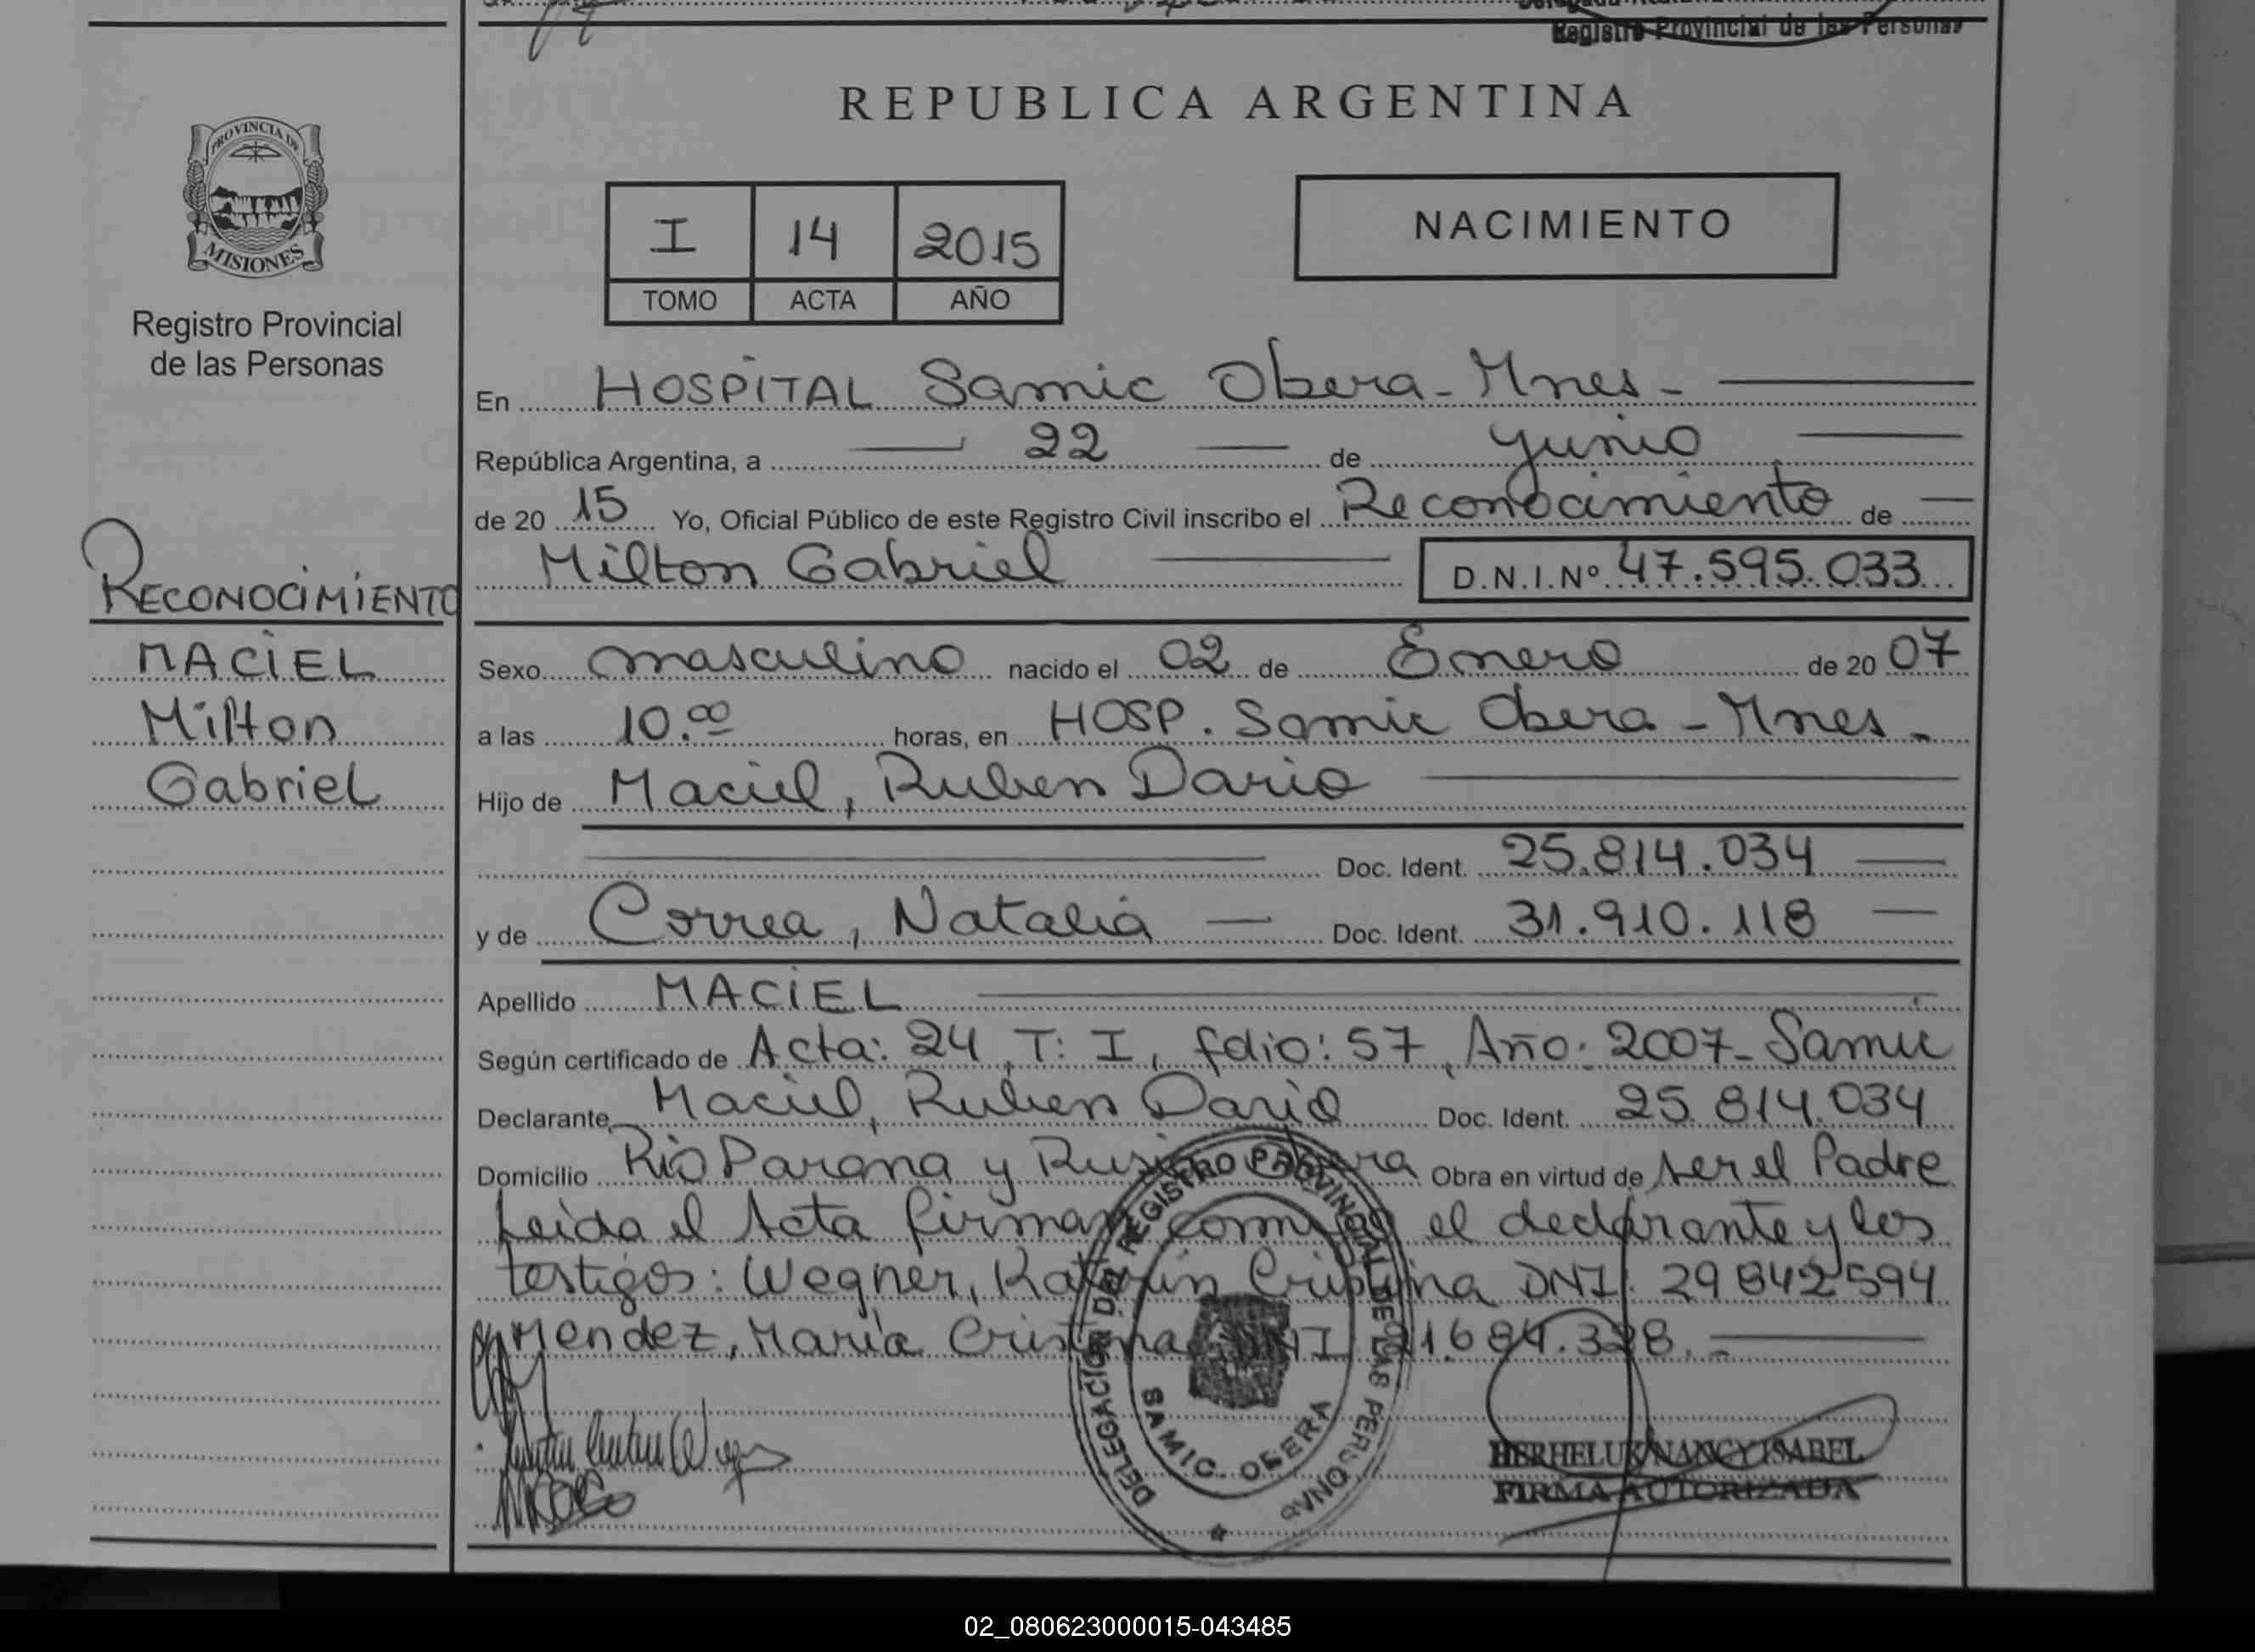 Registro Provincial de las Personas
REPUBLICA ARGENTINA
PROVINCIA DE
MISIONES
Registro Provincial
de las Personas
I 14 2015
TOMO ACTA AÑO
NACIMIENTO
En HOSPITAL Samic Obera - Mnes -
República Argentina, a 22 de Junio
de 20 15 Yo, Oficial Público de este Registro Civil inscribo el Reconocimiento de
Milton Gabriel D.N.I.Nº 47.595.033
RECONOCIMIENTO
MACIEL
Milton
Gabriel
Sexo masculino nacido el 02 de Enero de 20 07
a las 10.00 horas, en HOSP. Samic Obera - Mnes -
Hijo de Maciel, Ruben Dario
Doc. Ident. 25.814.034
y de Correa, Natalia Doc. Ident. 31.910.118
Apellido MACIEL
Según certificado de Acta: 24, T: I, folio: 57, Año: 2007 - Samic
Declarante Maciel, Ruben Dario Doc. Ident. 25.814.034
Domicilio Rio Parana y Obera Obra en virtud de ser el Padre
Leida el Acta firman conmigo el declarante y los
testigos: Wegner, Katerin Cristina DNI: 29 842 594
y Mendez, Maria Cristina DNI 21.684.328. -
DELEGACION DEL REGISTRO PROVINCIAL DE LAS PERSONAS
SAMIC - OBERA
BERHELUK NANCY ISABEL
FIRMA AUTORIZADA
02_080623000015-043485